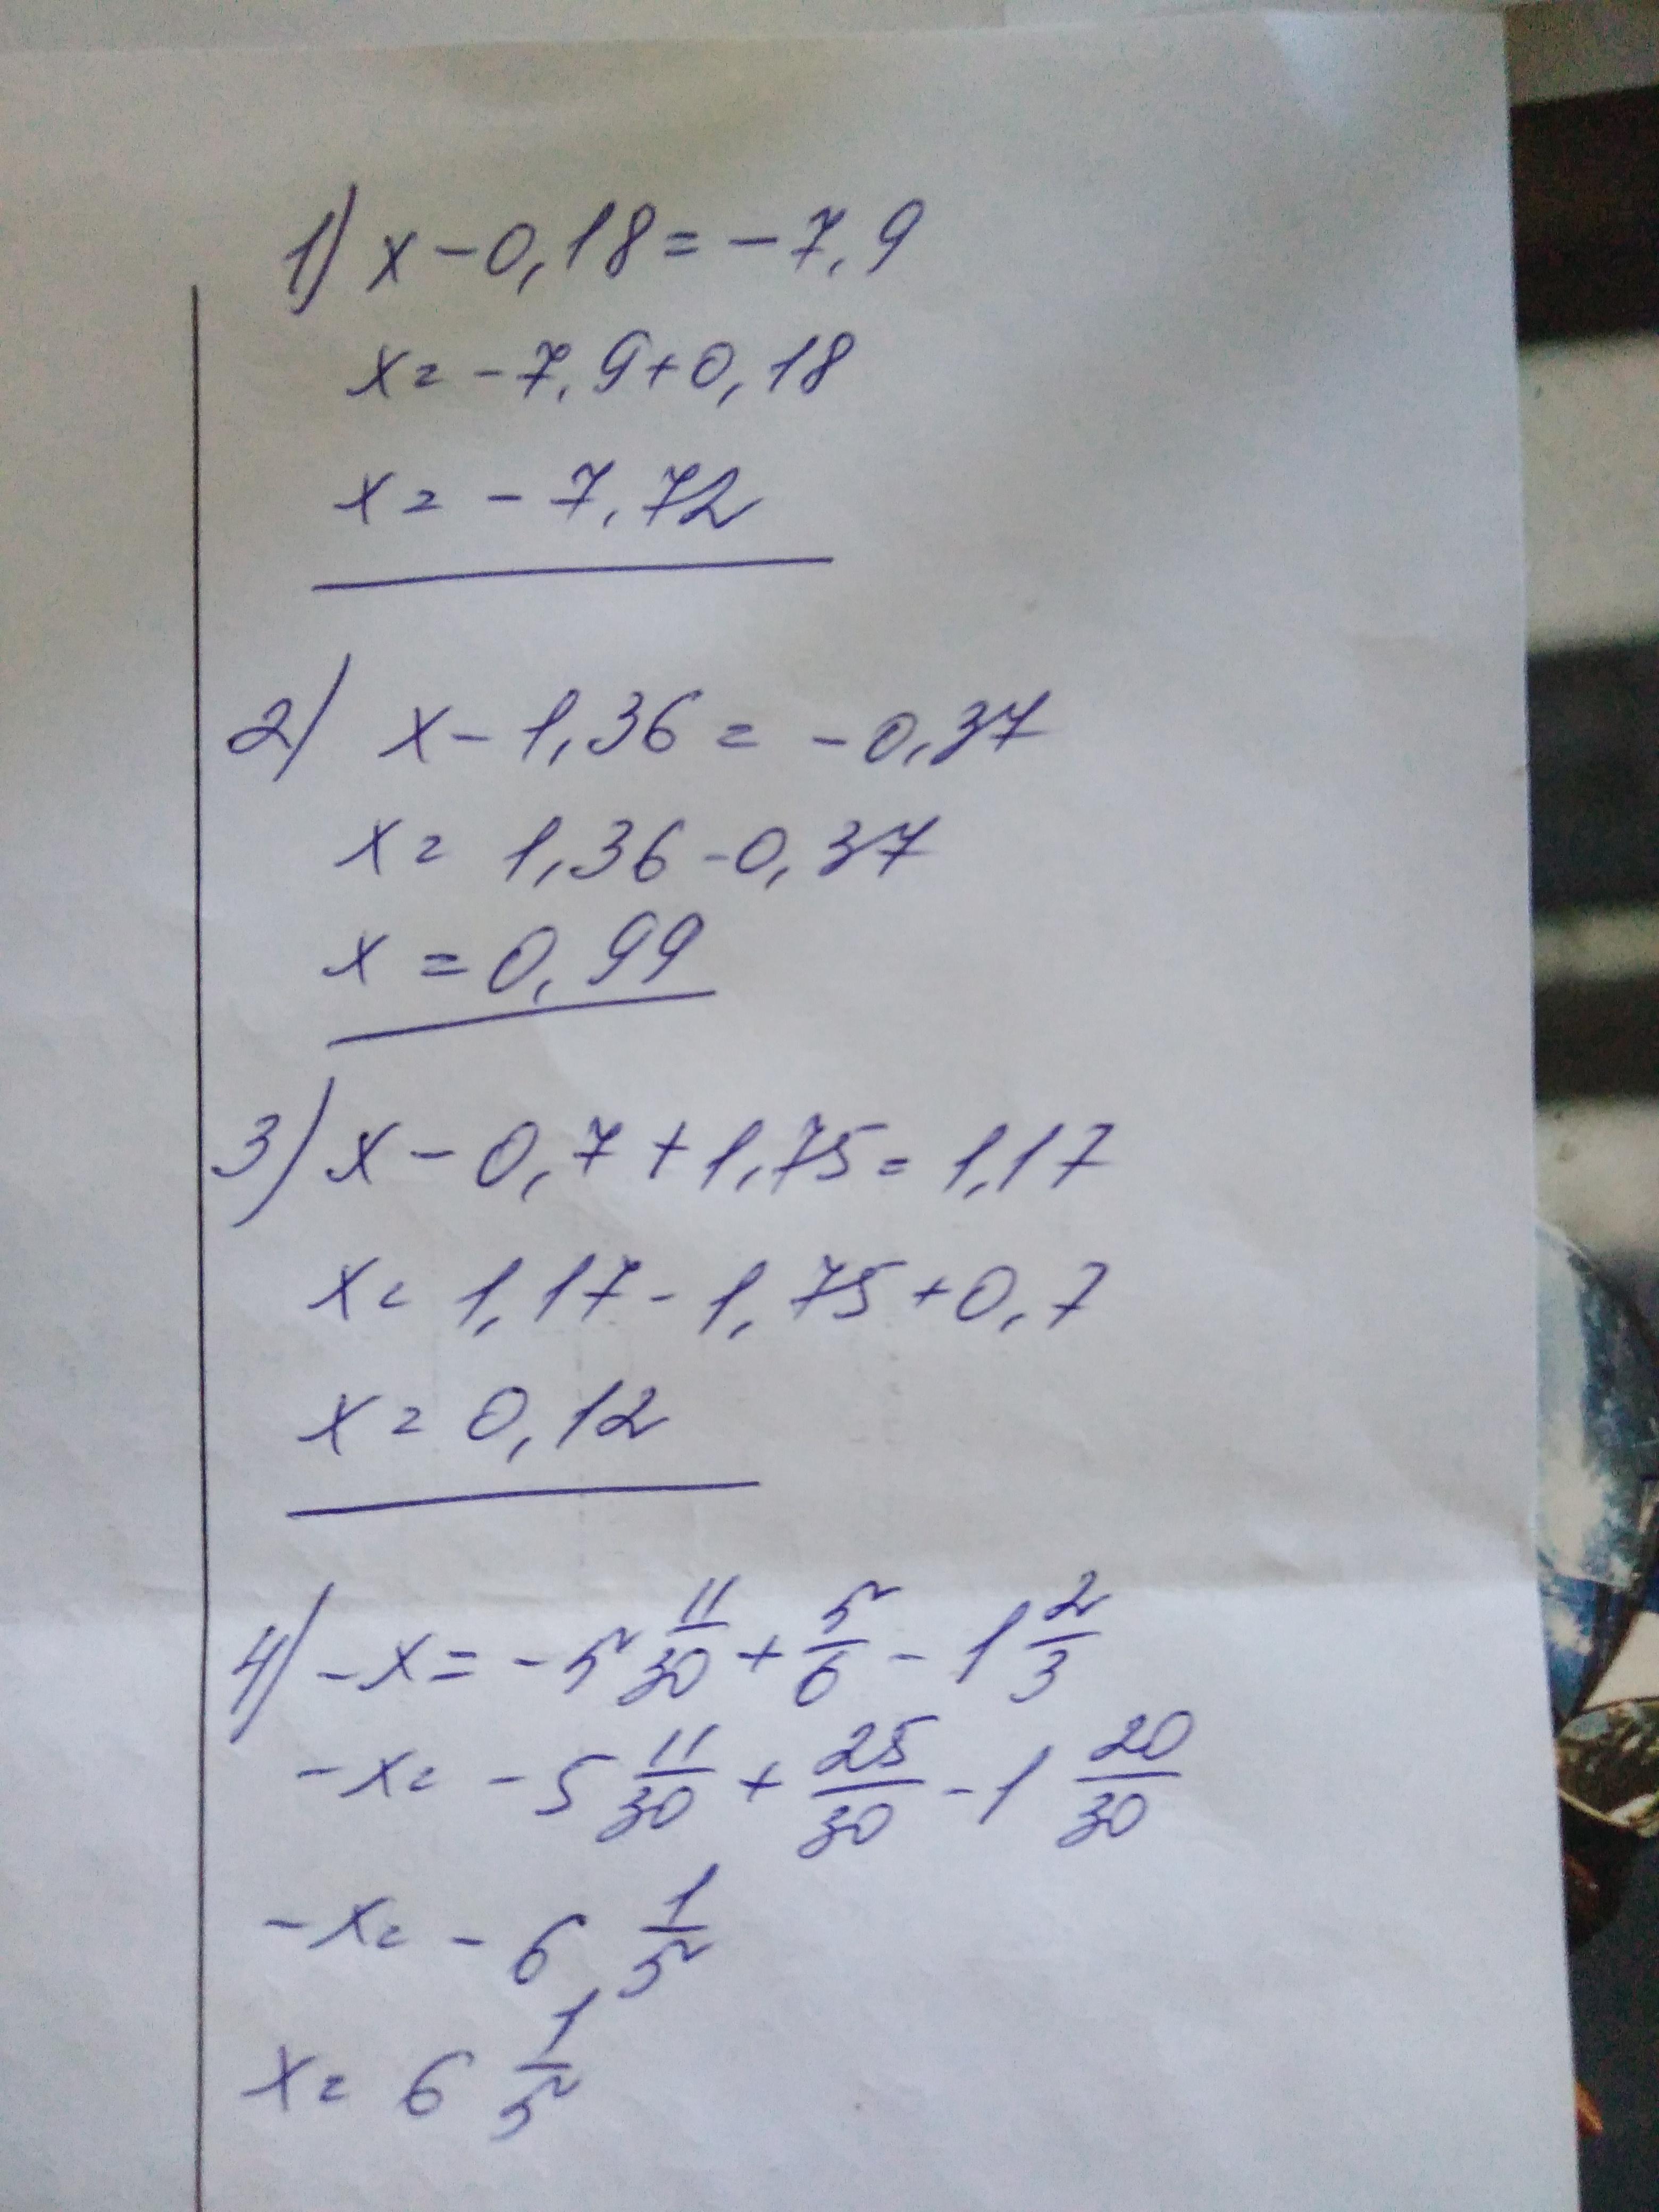 1) x - 0,18 = - 7,9
x = - 7,9 + 0,18
x = - 7,72
2) x - 1,36 = - 0,37
x = 1,36 - 0,37
x = 0,99
3) x - 0,7 + 1,75 = 1,17
x = 1,17 - 1,75 + 0,7
x = 0,12
4) - x = - 5 11/30 + 5/6 - 1 2/3
- x = - 5 11/30 + 25/30 - 1 20/30
- x = - 6 1/5
x = 6 1/5